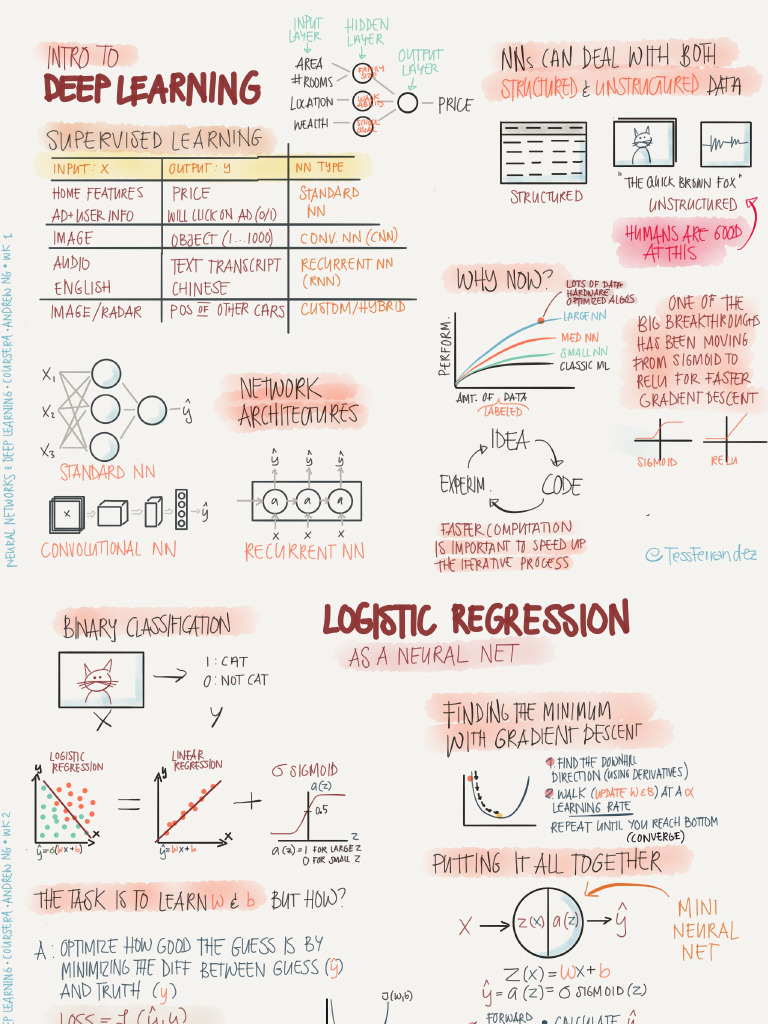 INTRO TO
DEEP LEARNING
INPUT
LAYER
HIDDEN
LAYER
OUTPUT
LAYER
AREA
#ROOMS
LOCATION
WEALTH
FAMILY
SIZE
WALK
ABILITY
SCHOOL
QUAL
PRICE
NNs CAN DEAL WITH BOTH
STRUCTURED & UNSTRUCTURED DATA
STRUCTURED
"THE QUICK BROWN FOX"
UNSTRUCTURED
HUMANS ARE GOOD
AT THIS
SUPERVISED LEARNING
INPUT: X OUTPUT: y NN TYPE
HOME FEATURES PRICE STANDARD
AD+USER INFO WILL CLICK ON AD (0/1) NN
IMAGE OBJECT (1...1000) CONV. NN (CNN)
AUDIO TEXT TRANSCRIPT RECURRENT NN
ENGLISH CHINESE (RNN)
IMAGE/RADAR POS OF OTHER CARS CUSTOM/HYBRID
WHY NOW?
LOTS OF DATA
HARDWARE
OPTIMIZED ALGOS
LARGE NN
MED NN
SMALL NN
CLASSIC ML
PERFORM.
AMT. OF DATA
LABELED
ONE OF THE
BIG BREAKTHROUGHS
HAS BEEN MOVING
FROM SIGMOID TO
RELU FOR FASTER
GRADIENT DESCENT
SIGMOID RELU
IDEA
EXPERIM. CODE
FASTER COMPUTATION
IS IMPORTANT TO SPEED UP
THE ITERATIVE PROCESS
@TessFerrandez
NETWORK
ARCHITECTURES
X₁
X₂
X₃
ŷ
STANDARD NN
X ŷ
CONVOLUTIONAL NN
ŷ ŷ ŷ
a a a
X X X
RECURRENT NN
NEURAL NETWORKS & DEEP LEARNING • COURSERA • ANDREW NG • WK 1
BINARY CLASSIFICATION
1: CAT
0: NOT CAT
X y
LOGISTIC REGRESSION
AS A NEURAL NET
LOGISTIC
REGRESSION
y
x
ŷ=σ(wx+b)
=
LINEAR
REGRESSION
y
x
ŷ=wx+b
+
σ SIGMOID
a(z)
0.5
z
a(z)=1 FOR LARGE z
0 FOR SMALL z
FINDING THE MINIMUM
WITH GRADIENT DESCENT
1. FIND THE DOWNHILL
DIRECTION (USING DERIVATIVES)
2. WALK (UPDATE w & b) AT A α
LEARNING RATE
REPEAT UNTIL YOU REACH BOTTOM
(CONVERGE)
PUTTING IT ALL TOGETHER
X z(x) a(z) ŷ
MINI
NEURAL
NET
Z(x) = wx+b
ŷ = a(z) = σ SIGMOID(z)
FORWARD • CALCULATE ŷ
THE TASK IS TO LEARN w & b BUT HOW?
A: OPTIMIZE HOW GOOD THE GUESS IS BY
MINIMIZING THE DIFF BETWEEN GUESS (ŷ)
AND TRUTH (y)
LOSS = ℒ(ŷ,y)
J(w,b)
EP LEARNING • COURSERA • ANDREW NG • WK 2